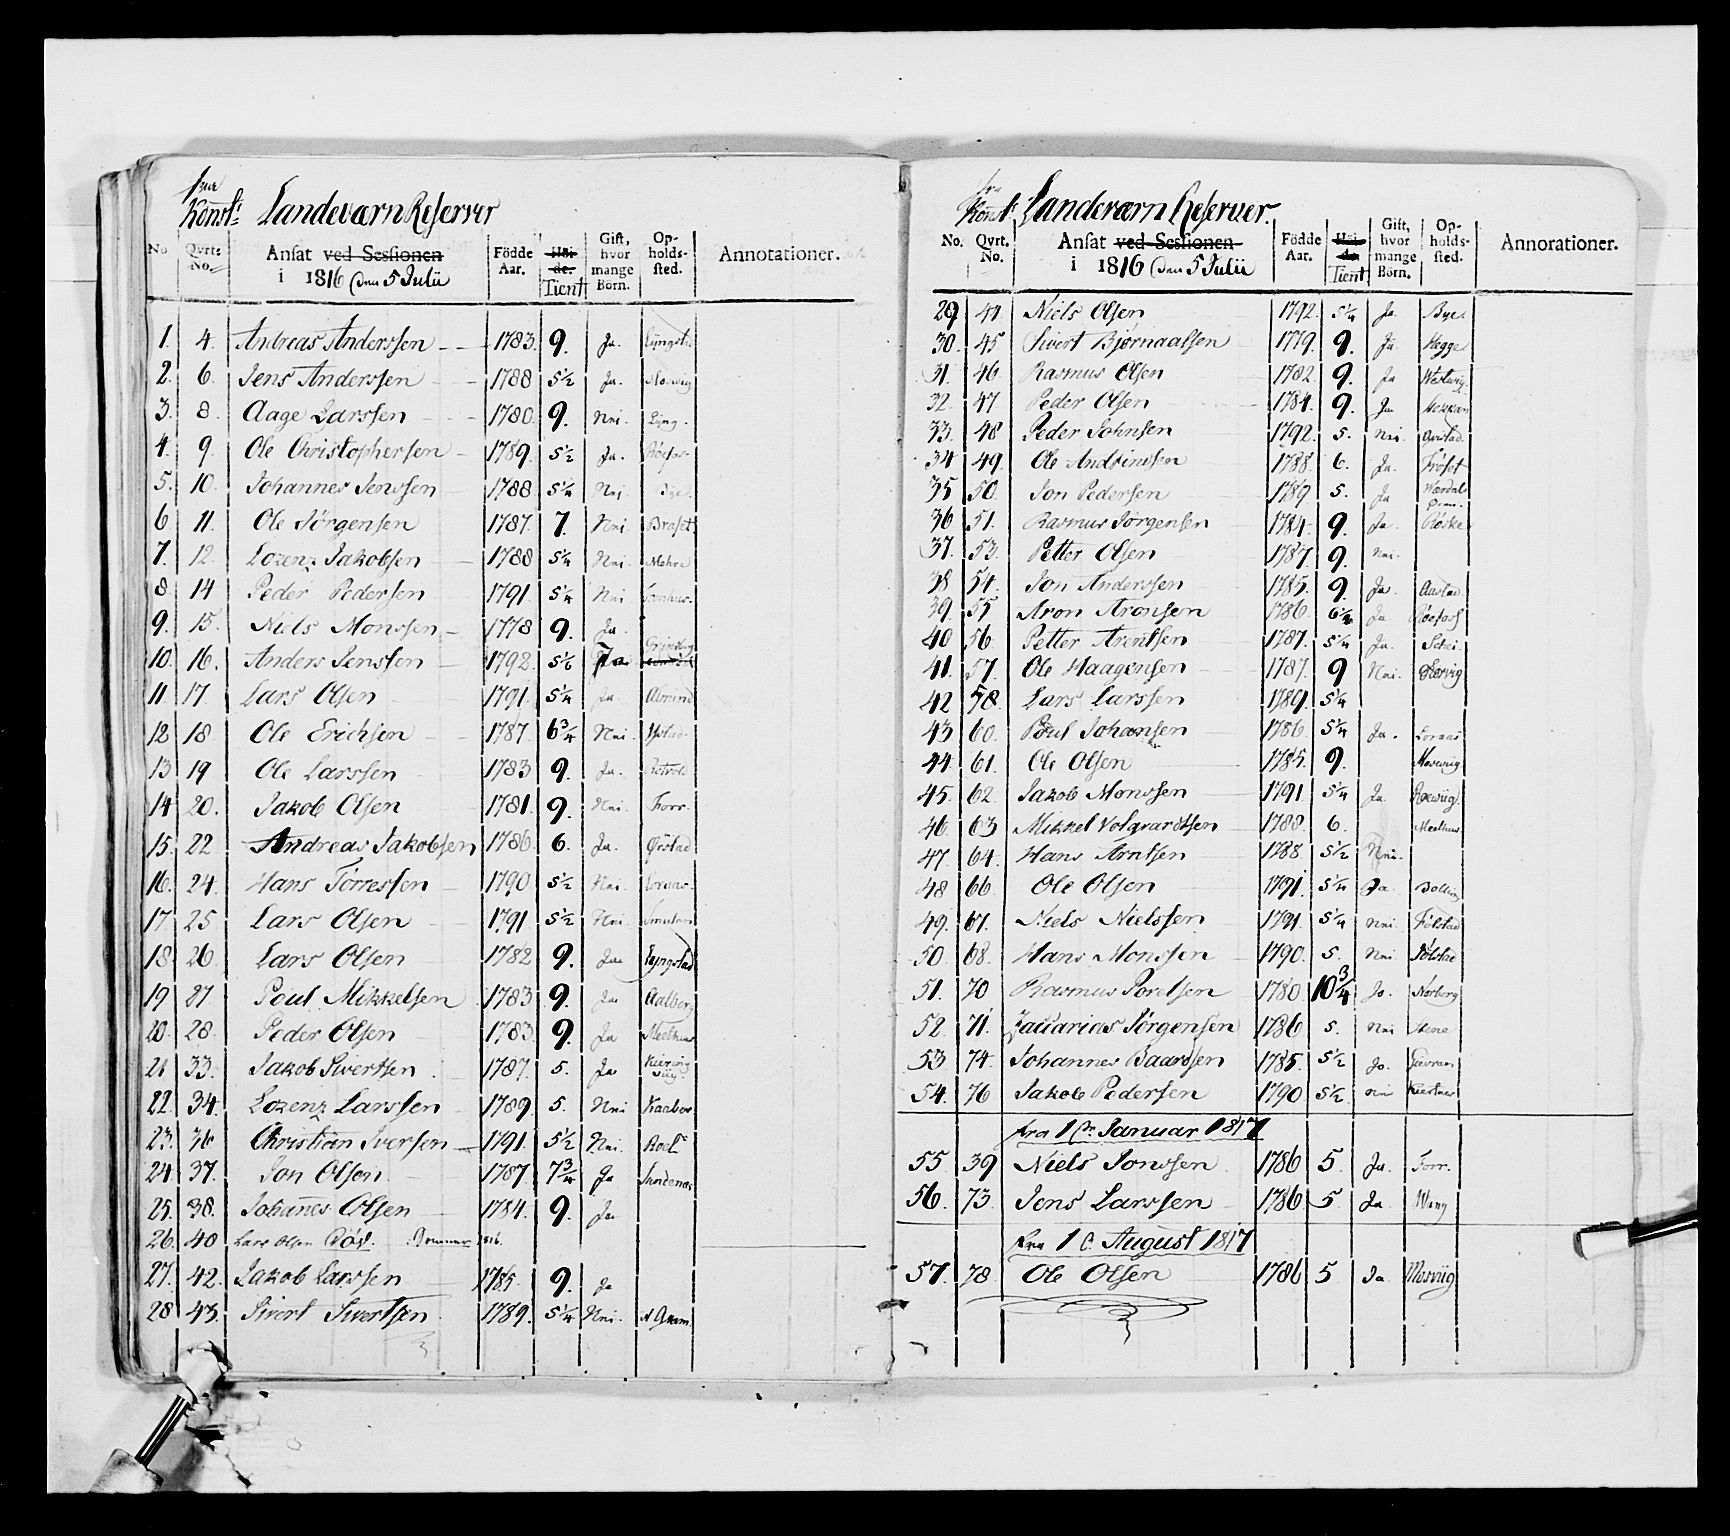 Konst: Landeværn Reserver
No Qvrt: No. Ansat ved Sessionen i 1816 den 5 Julii Födde Aar. Høi-de. Tient Gift, hvor mange Börn. Op-holds-sted. Annotationer.
1. 4. Andreas Anderssen 1783. 9. Ja. Lÿngstad
2. 6. Jens Anderssen 1788 5½ Ja. Mosvig
3. 8. Aage Larssen 1780. 9. Nei. Lÿng.
4. 9. Ole Christophersen 1789. 5½ Ja.
5. 10. Johannes Jenssen 1788 5¼ Nei
6 11. Ole Jørgensen 1787. 7. Nei Braset
7. 12. Lorenz Jakobsen 1788 5¼ Nei.
8. 14 Peder Pedersen 1791. 5¼ Nei
9. 15. Niels Monssen 1778 9. Ja
10. 16. Anders Jenssen 1792. 5½ Ja
11 17 Lars Olsen 1791. 5¼ Ja.
12 18. Ole Erichsen 1787. 6¾ Nei
13 19 Ole Larssen 1783 9. Ja.
14 20. Jakob Olsen 1781. 9. Nei Forr.
15. 22 Andreas Jakobsen 1786. 6. Ja. Ørstad
16. 24. Hans Torressen 1790 5½ Nei.
17. 25 Lars Olsen 1791 5½ Nei
18. 26. Lars Olsen 1782 9. Ja Lyngstad
19 27. Poul Mikkelsen 1783 9. Ja Aalberg
20. 28. Peder Olsen 1783. 9. Ja Meelhuus
21 33. Jakob Sivertsen 1787. 5. Ja
22. 34. Lorenz Larssen 1789. 5. Nei
23. 36 Christian Iversen 1791. 5½ Nei.
24. 37. Jon Olsen 1787 7¾ Ja
25. 38. Johannes Olsen 1784. 9. Ja
26. 40 Lars Olsen Død. Sommer 1816.
27. 42. Jakob Larssen 1785. 9. Ja
28 43. Sivert Sivertsen 1789. 5¼ Nei.
fra Konst Landeværn Reserver.
No. Qvrt. No. Ansat ved Sessionen i 1816 den 5 Julii Födde Aar. Høi-de Tient Gift, hvor mange Börn. Op-holds-sted. Annorationer.
29 41 Niels Olsen 1792. 5¼ Ja. Bye.
30. 45 Sivert Bjørnaalsen 1779. 9. Ja Hegge
31. 46 Rasmus Olsen 1782. 9. Ja
32. 47. Peder Olsen 1784. 9. Ja
33. 48 Peder Johnsen 1792. 5. Nei
34 49. Ole Andrinssen 1788. 6. Ja. Frøset
35 50. Jon Pedersen 1789 5. Ja
36 51. Rasmus Jørgensen 1784. 9. Ja. Røske
37. 53. Petter Olsen 1787. 9. Nei.
38 54. Jon Anderssen 1785. 9. Ja.
39. 55 Aron Aronsen 1786 6½ Ja
40 56. Petter Arentsen 1787. 5¼ Ja.
41. 57. Ole Haagensen 1787. 9 Nei.
42 58. Lars Larssen 1789. 5¼
43 60. Poul Johansen 1786. 5¼ Ja.
44 61. Ole Olsen 1785. 9. Mosviig
45. 62. Jakob Monssen 1791 5¼ Ja
46. 63 Mikkel Volqvardtsen 1788. 6. Meelhuus
47. 64. Hans Arntsen 1788. 5½ Nei.
48 66 Ole Olsen 1791. 5¼ Ja
49. 67. Niels Nielssen 1791 5¼ Nei Følstad
50. 68. Hans Monssen 1790. 5. Nei
51. 70 Rasmus Toretsen 1780 10¾ Ja. Norberg
52. 71. Zacharias Jørgensen 1786 5. Nei
53 74. Johannes Baardsen 1785. 5½ Ja.
54. 76 Jakob Pedersen 1790 5½ Nei
fra 1ste Januar 1817
55 39 Niels Jonssen 1786 5. Ja. Forr.
56. 73. Jens Larssen 1786 5 Ja
fra 1 August 1817
57. 78. Ole Olsen 1786 5 Ja Mosviig